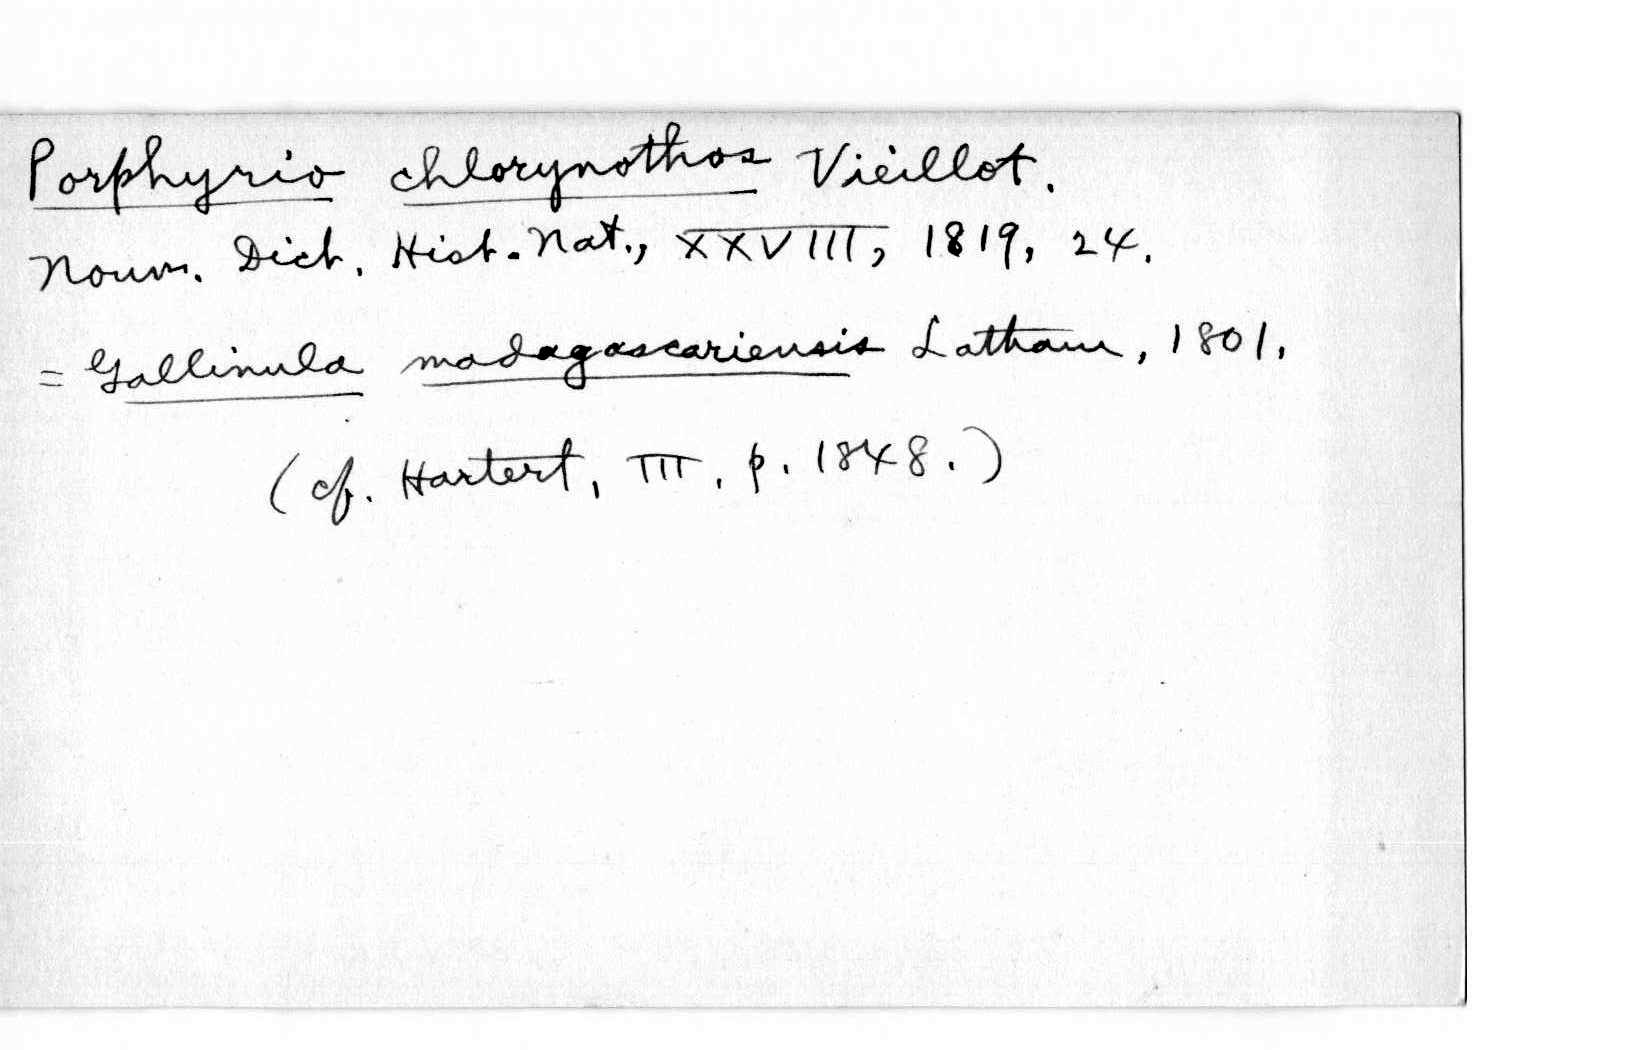 Porphyrio chlorynothos Vieillot.
Nouv. Dict. Hist. Nat., XXVIII, 1819, 24.
= Gallinula madagascariensis Latham, 1801.
(cf. Hartert, III, p. 1848.)